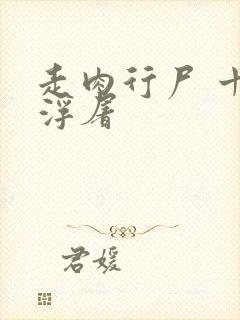 走肉行尸 十
浮屠
君媛